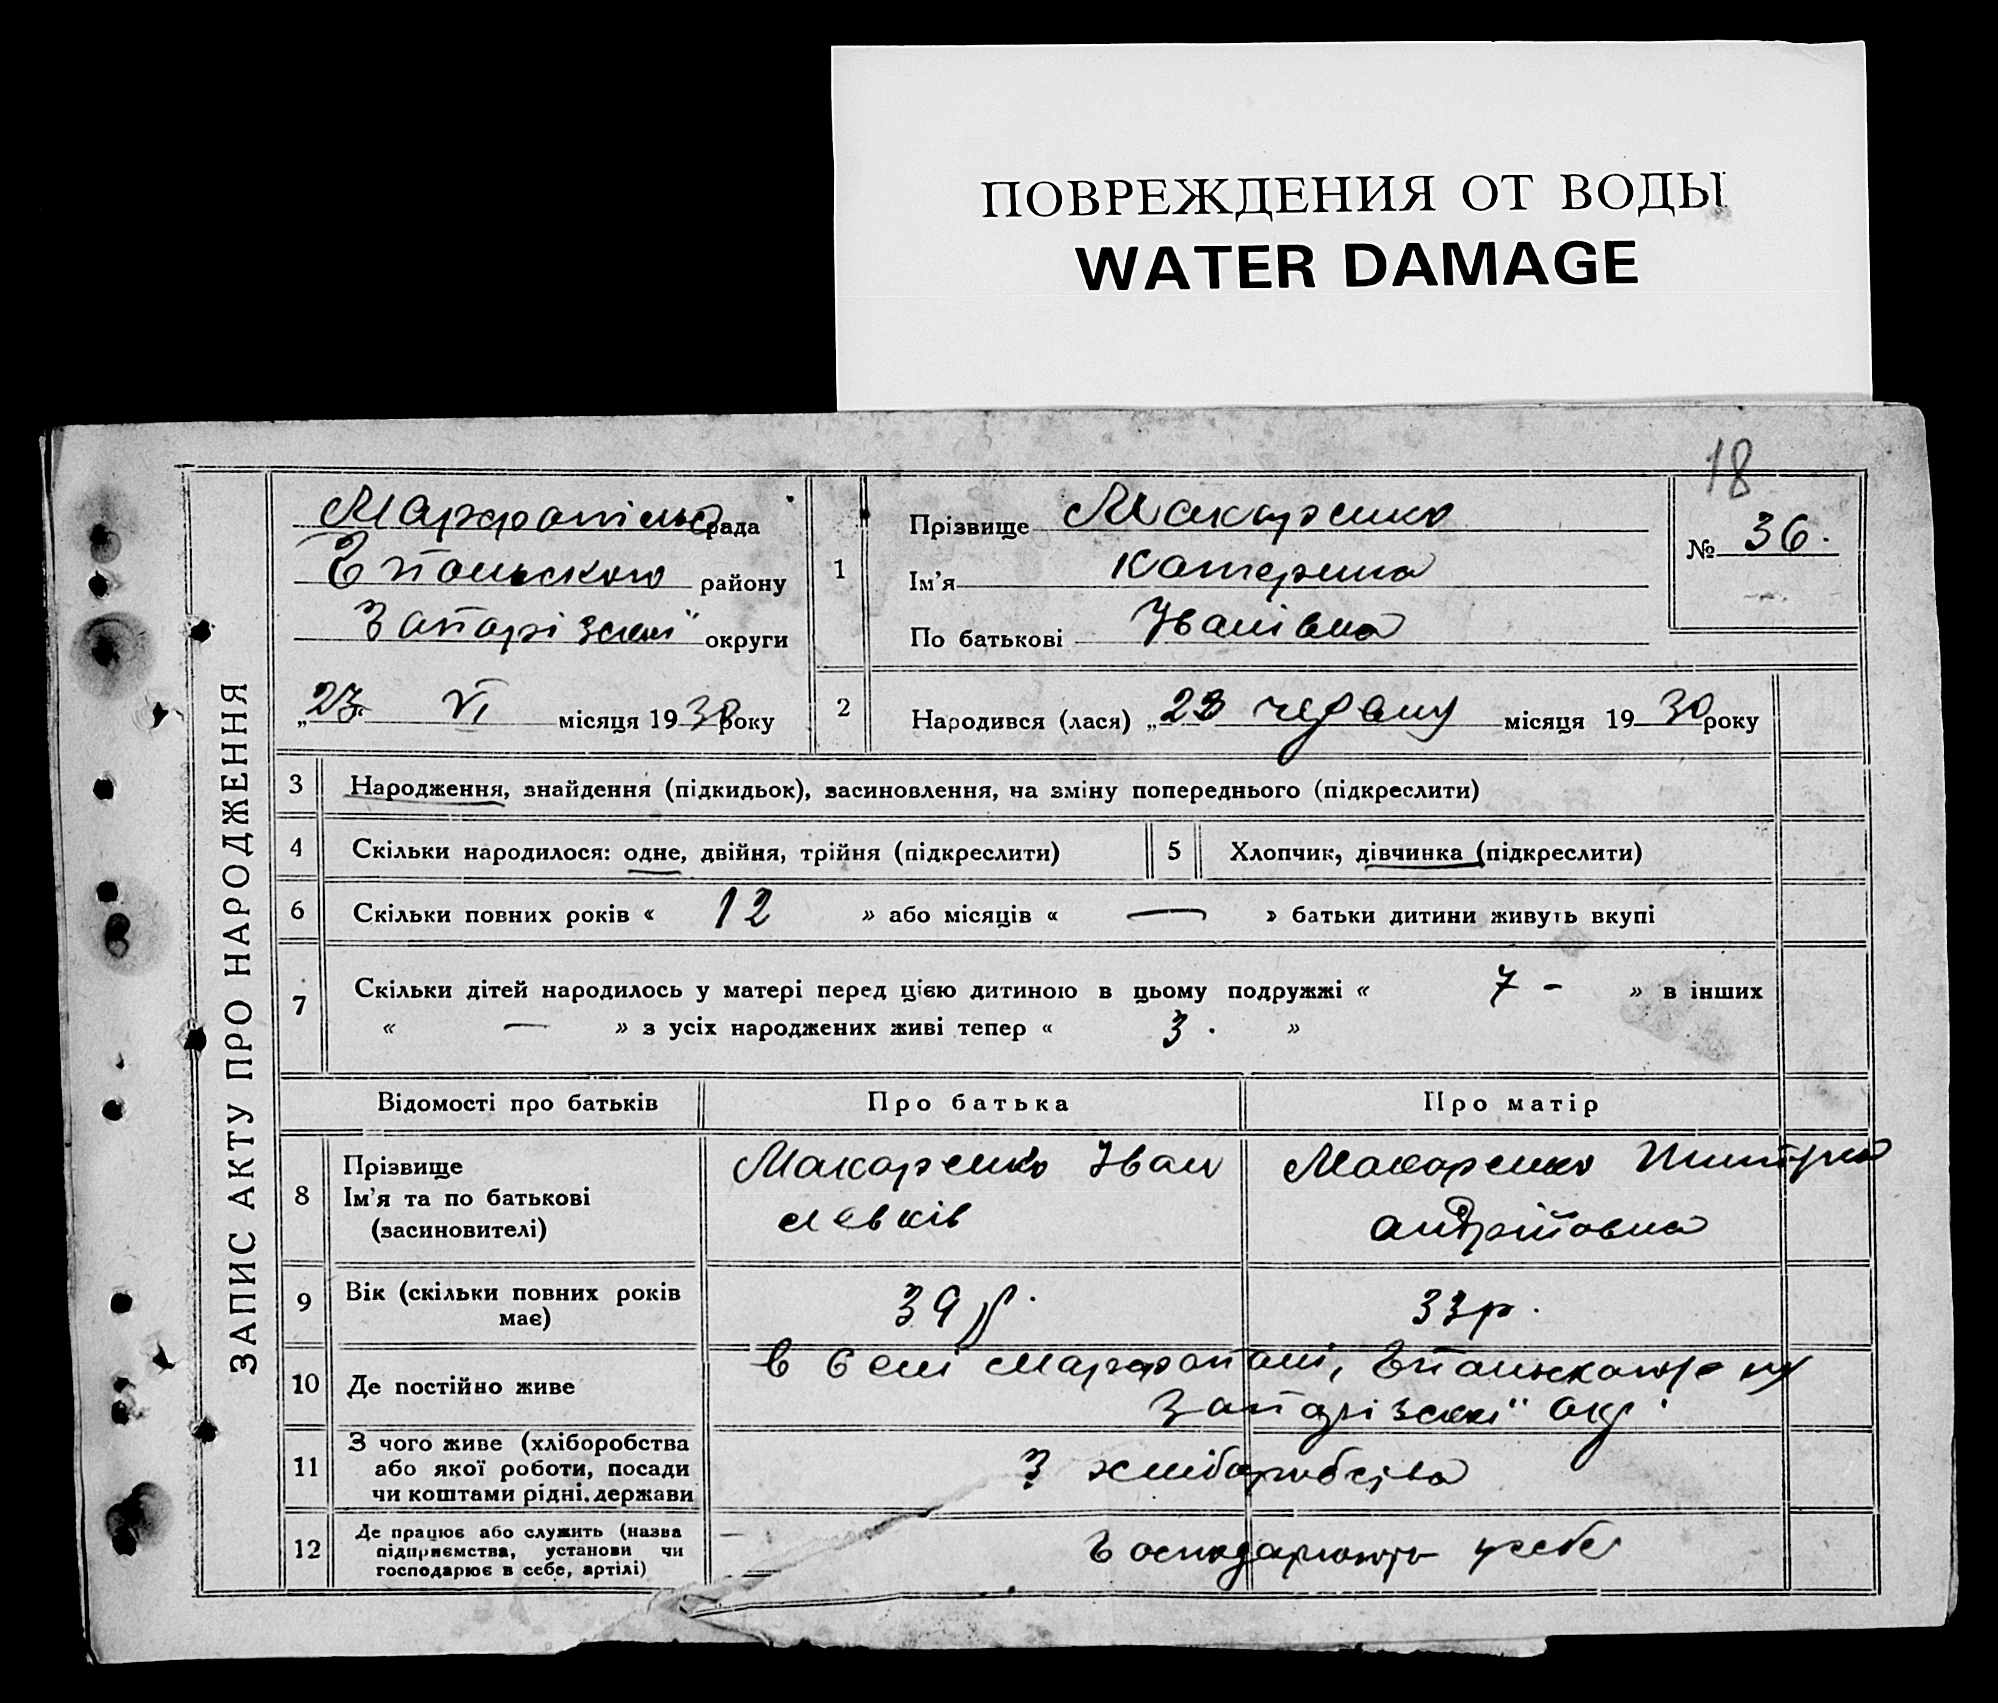 ПОВРЕЖДЕНИЯ ОТ ВОДЫ
WATER DAMAGE
18
ЗАПИС АКТУ ПРО НАРОДЖЕННЯ
рада
району
Запорізської округи
„23 VI місяця 1930 року
1
Прізвище Макаренко
Ім'я Катерина
По батькові Іванівна
№ 36.
2 Народився (лася) „23 червня місяця 1930 року
3 Народження, знайдення (підкидьок), засиновлення, на зміну попереднього (підкреслити)
4 Скільки народилося: одне, двійня, трійня (підкреслити) 5 Хлопчик, дівчинка (підкреслити)
6 Скільки повних років « 12 » або місяців « — » батьки дитини живуть вкупі
7 Скільки дітей народилось у матері перед цією дитиною в цьому подружжі « 7 - » в інших
« — » з усіх народжених живі тепер « 3. »
Відомості про батьків Про батька Про матір
8 Прізвище
Ім'я та по батькові
(засиновителі)
Макаренко Іван
Левків
Макаренко
Андрійовна
9 Вік (скільки повних років
має)
39 р. 33 р.
10 Де постійно живе
в селі
Запорізскої окр.
11 З чого живе (хліборобства
або якої роботи, посади
чи коштами рідні, держави
З хліборобства
12 Де працює або служить (назва
підприємства, установи чи
господарює в себе, артілі)
Господарюють у себе